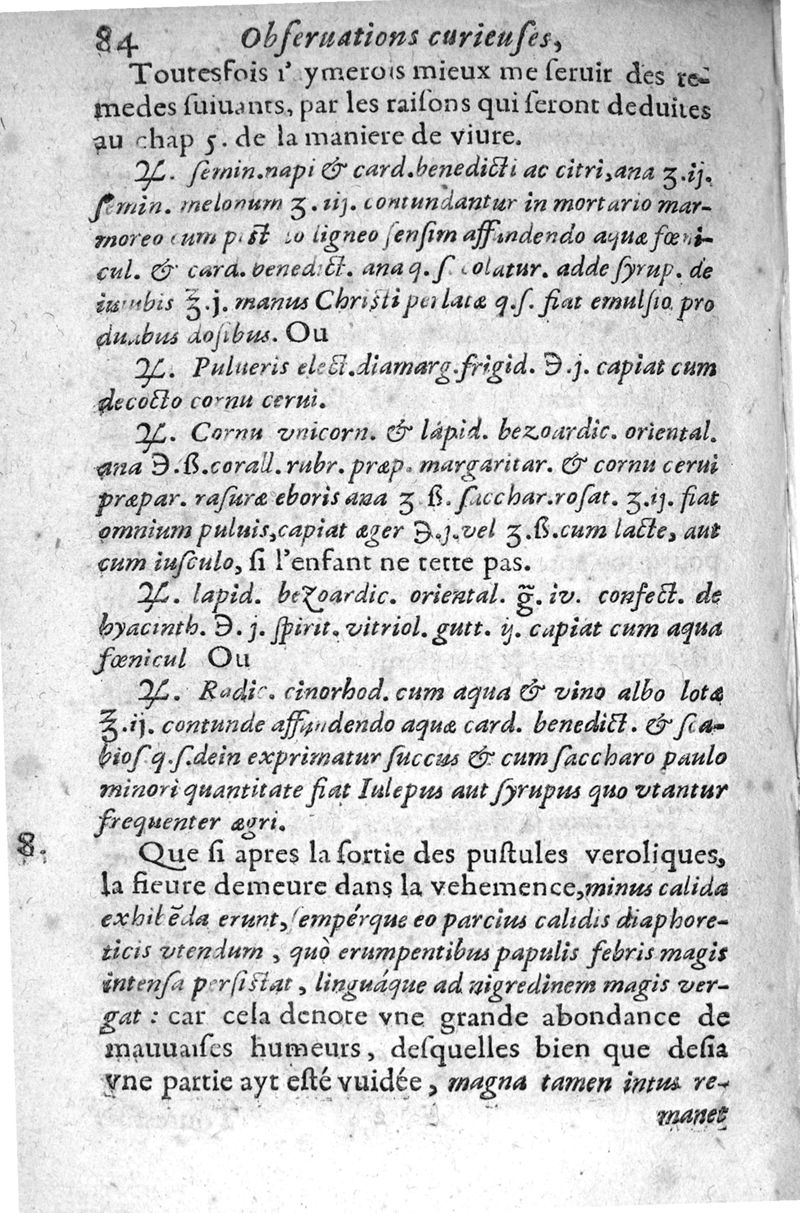 84 Obſeruations curieuſes,
Toutesfois i' ymerois mieux me ſeruir des re-
medes ſuiuants, par les raiſons qui ſeront deduites
au chap 5. de la maniere de viure.
℞. ſemin.napi & card.benedicti ac citri,ana ʒ.ij.
ſemin. melonum ʒ.iij. contundantur in mortario mar-
moreo cum piſt lo ligneo ſenſim affundendo aquæ fœni-
cul. & card. benedict. ana q. ſ. colatur. adde ſyrup. de
iuiubis ℥.j. manus Chriſti perlatæ q.ſ. fiat emulſio pro
duabus doſibus. Ou
℞. Pulueris elect.diamarg.frigid. ℈.j. capiat cum
decocto cornu cerui.
℞. Cornu vnicorn. & lapid. bezoardic. oriental.
ana ℈.ß.corall.rubr.præp. margaritar. & cornu cerui
præpar. raſuræ eboris ana ʒ ß. ſacchar.roſat. ʒ.ij. fiat
omnium puluis,capiat æger ℈.j.vel ʒ.ß.cum lacte, aut
cum iuſculo, ſi l'enfant ne tette pas.
℞. lapid. bezoardic. oriental. g̃. iv. confect. de
hyacinth. ℈. j. ſpirit. vitriol. gutt. ij. capiat cum aqua
fœnicul Ou
℞. Radic. cinorhod. cum aqua & vino albo lotæ
℥.ij. contunde affundendo aquæ card. benedict. & ſca-
bioſ q.ſ.dein exprimatur ſuccus & cum ſaccharo paulo
minori quantitate fiat Iulepus aut ſyrupus quo vtantur
frequenter ægri.
8. Que ſi apres la ſortie des puſtules veroliques,
la fieure demeure dans la vehemence,minus calida
exhibẽda erunt,ſempérque eo parcius calidis diaphore-
ticis vtendum , quò erumpentibus papulis febris magis
intenſa perſiſtat , linguáque ad nigredinem magis ver-
gat : car cela denote vne grande abondance de
mauuaiſes humeurs, deſquelles bien que deſia
vne partie ayt eſté vuidée , magna tamen intus re-
manet